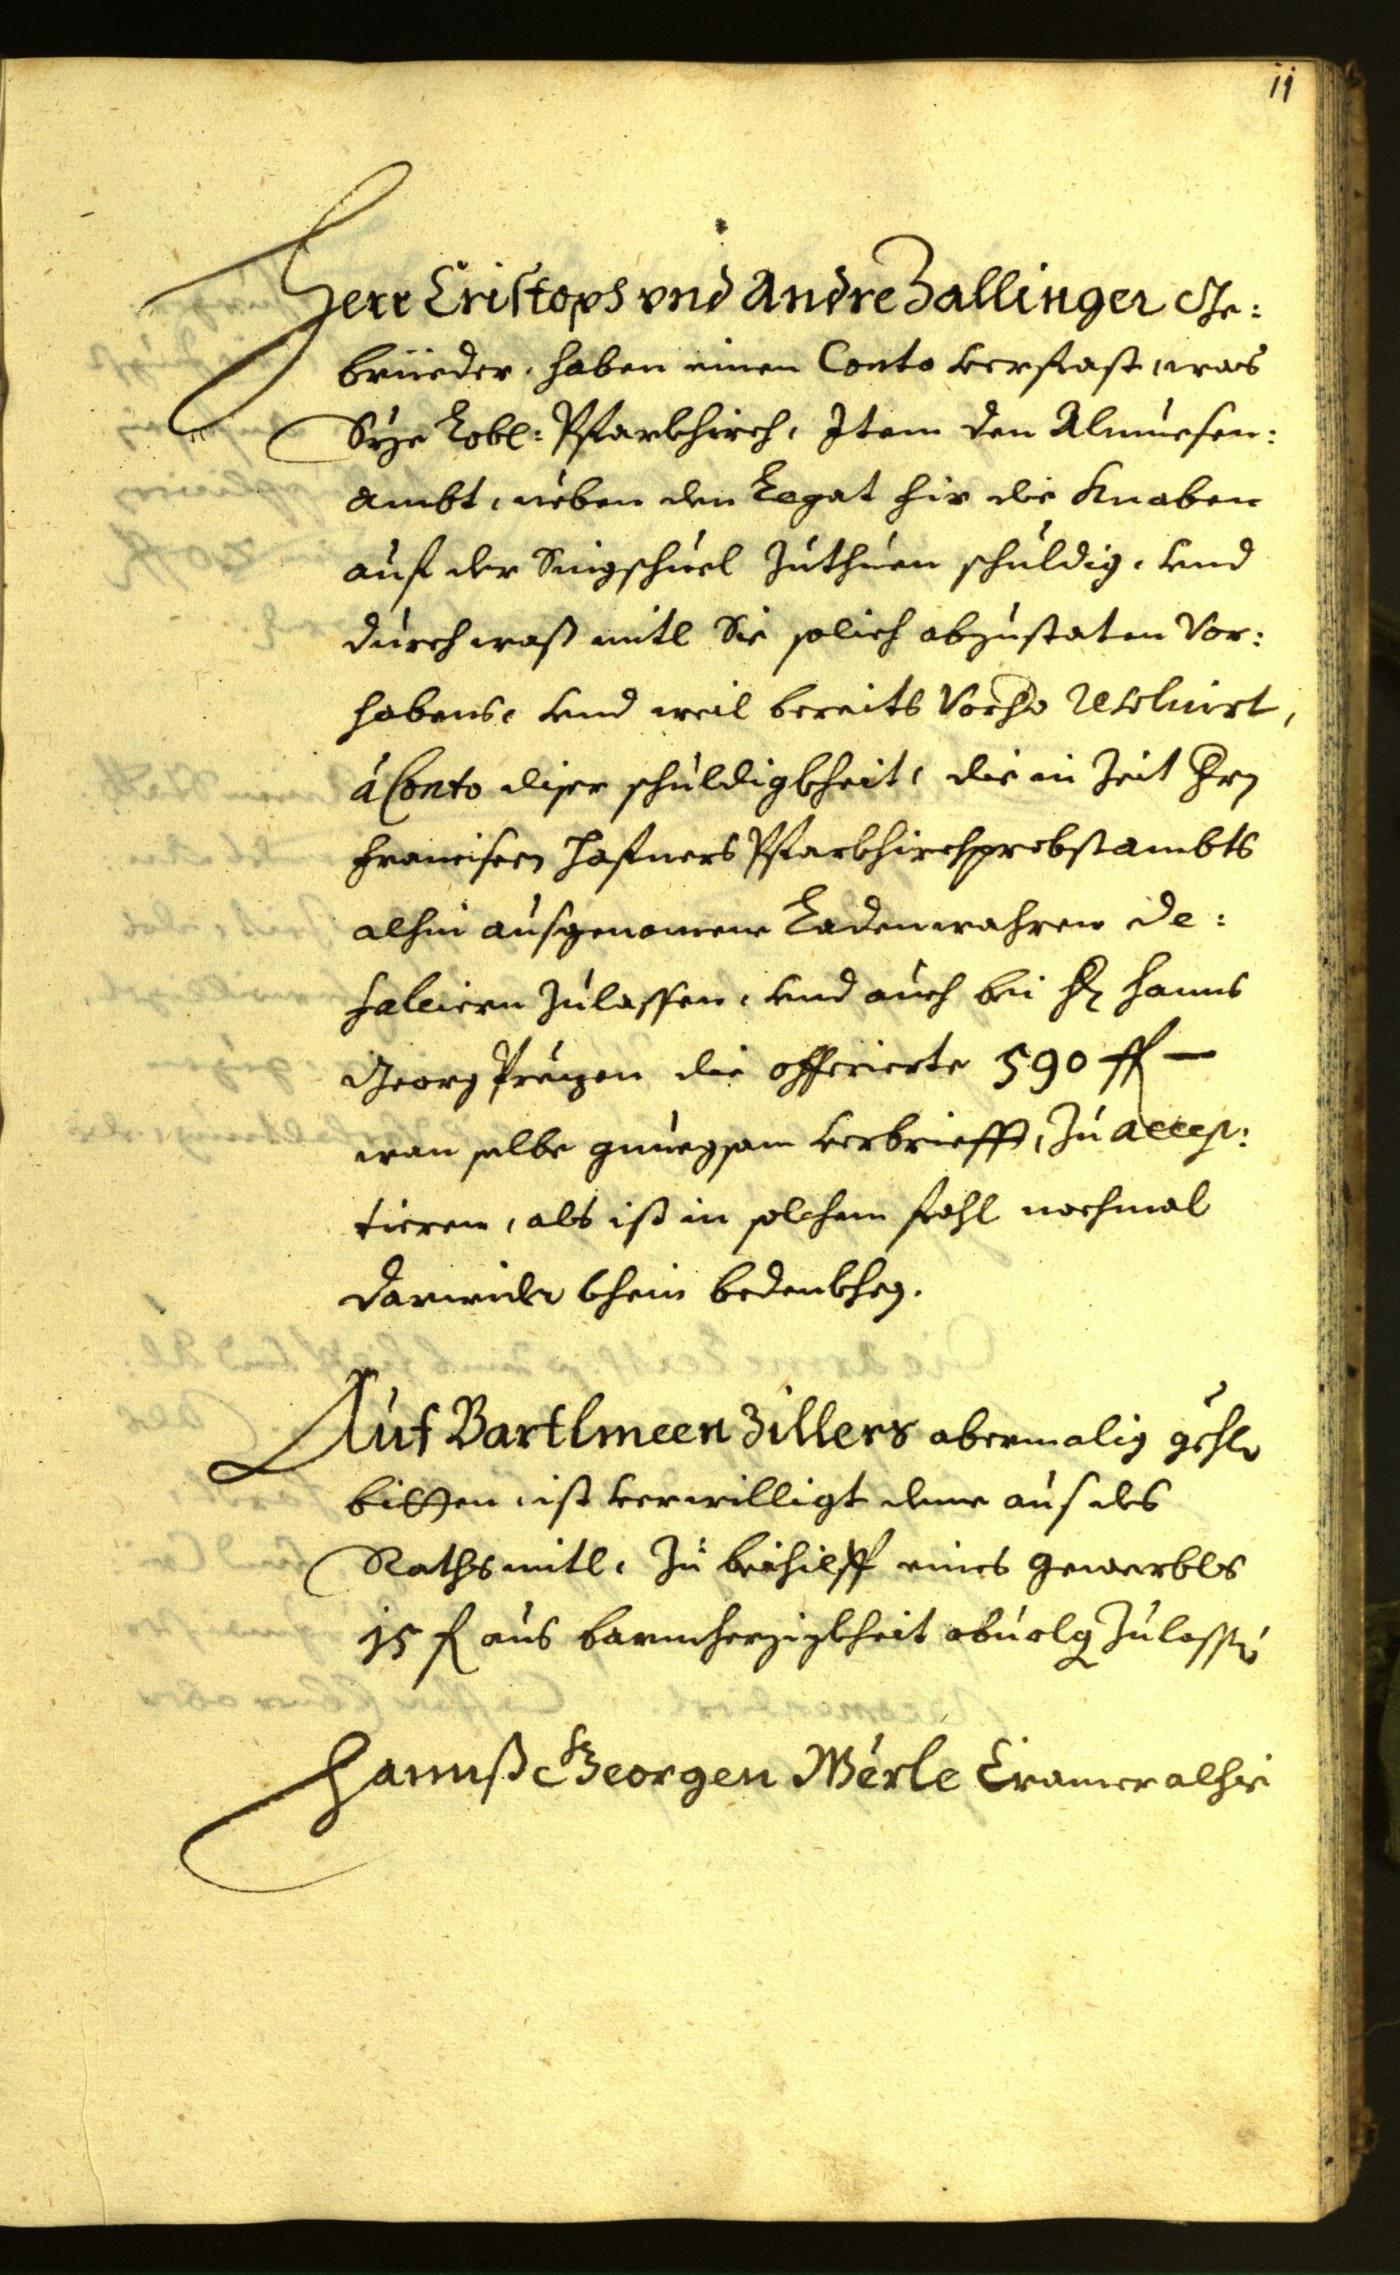 11
Herr Cristoph vnd Andre Zallinger Ge:
brüeder, haben einen Conto verfast, was
Sÿe Lobl: Pfarkhirch, Item den Almuesen:
ambt, neben den Legat fir die Knaben
auf der Singschuel zuthuen schuldig, vnd
durch waß mitl Sie solich abzustaten Vor:
habens, vnd weil bereits Vorho Resoluirt,
à Conto diser schuldigkheit, die in Zeit Hrn
Francisen Hafners Pfarkhirchprobstambts
alhin ausgenomene Ladenwahren de:
falciern zulassen, vnd auch bei Hr Hanns
Georg Preyen die offerierte 590 ff —
wan selbe gnuegsam verbriefft, zu accep:
tieren, als ist in solchem fahl nochmal
darwider khein bedenkhen.
Auf Bartlmeen Zillers abermalig gehl
bitten, ist verwilligt deme auf des
Raths mitl, zu beihilff eines gewerbls
15 f aus barmherzigkheit abuolg zulassen
Hannß Georgen Werle Cramer alhie